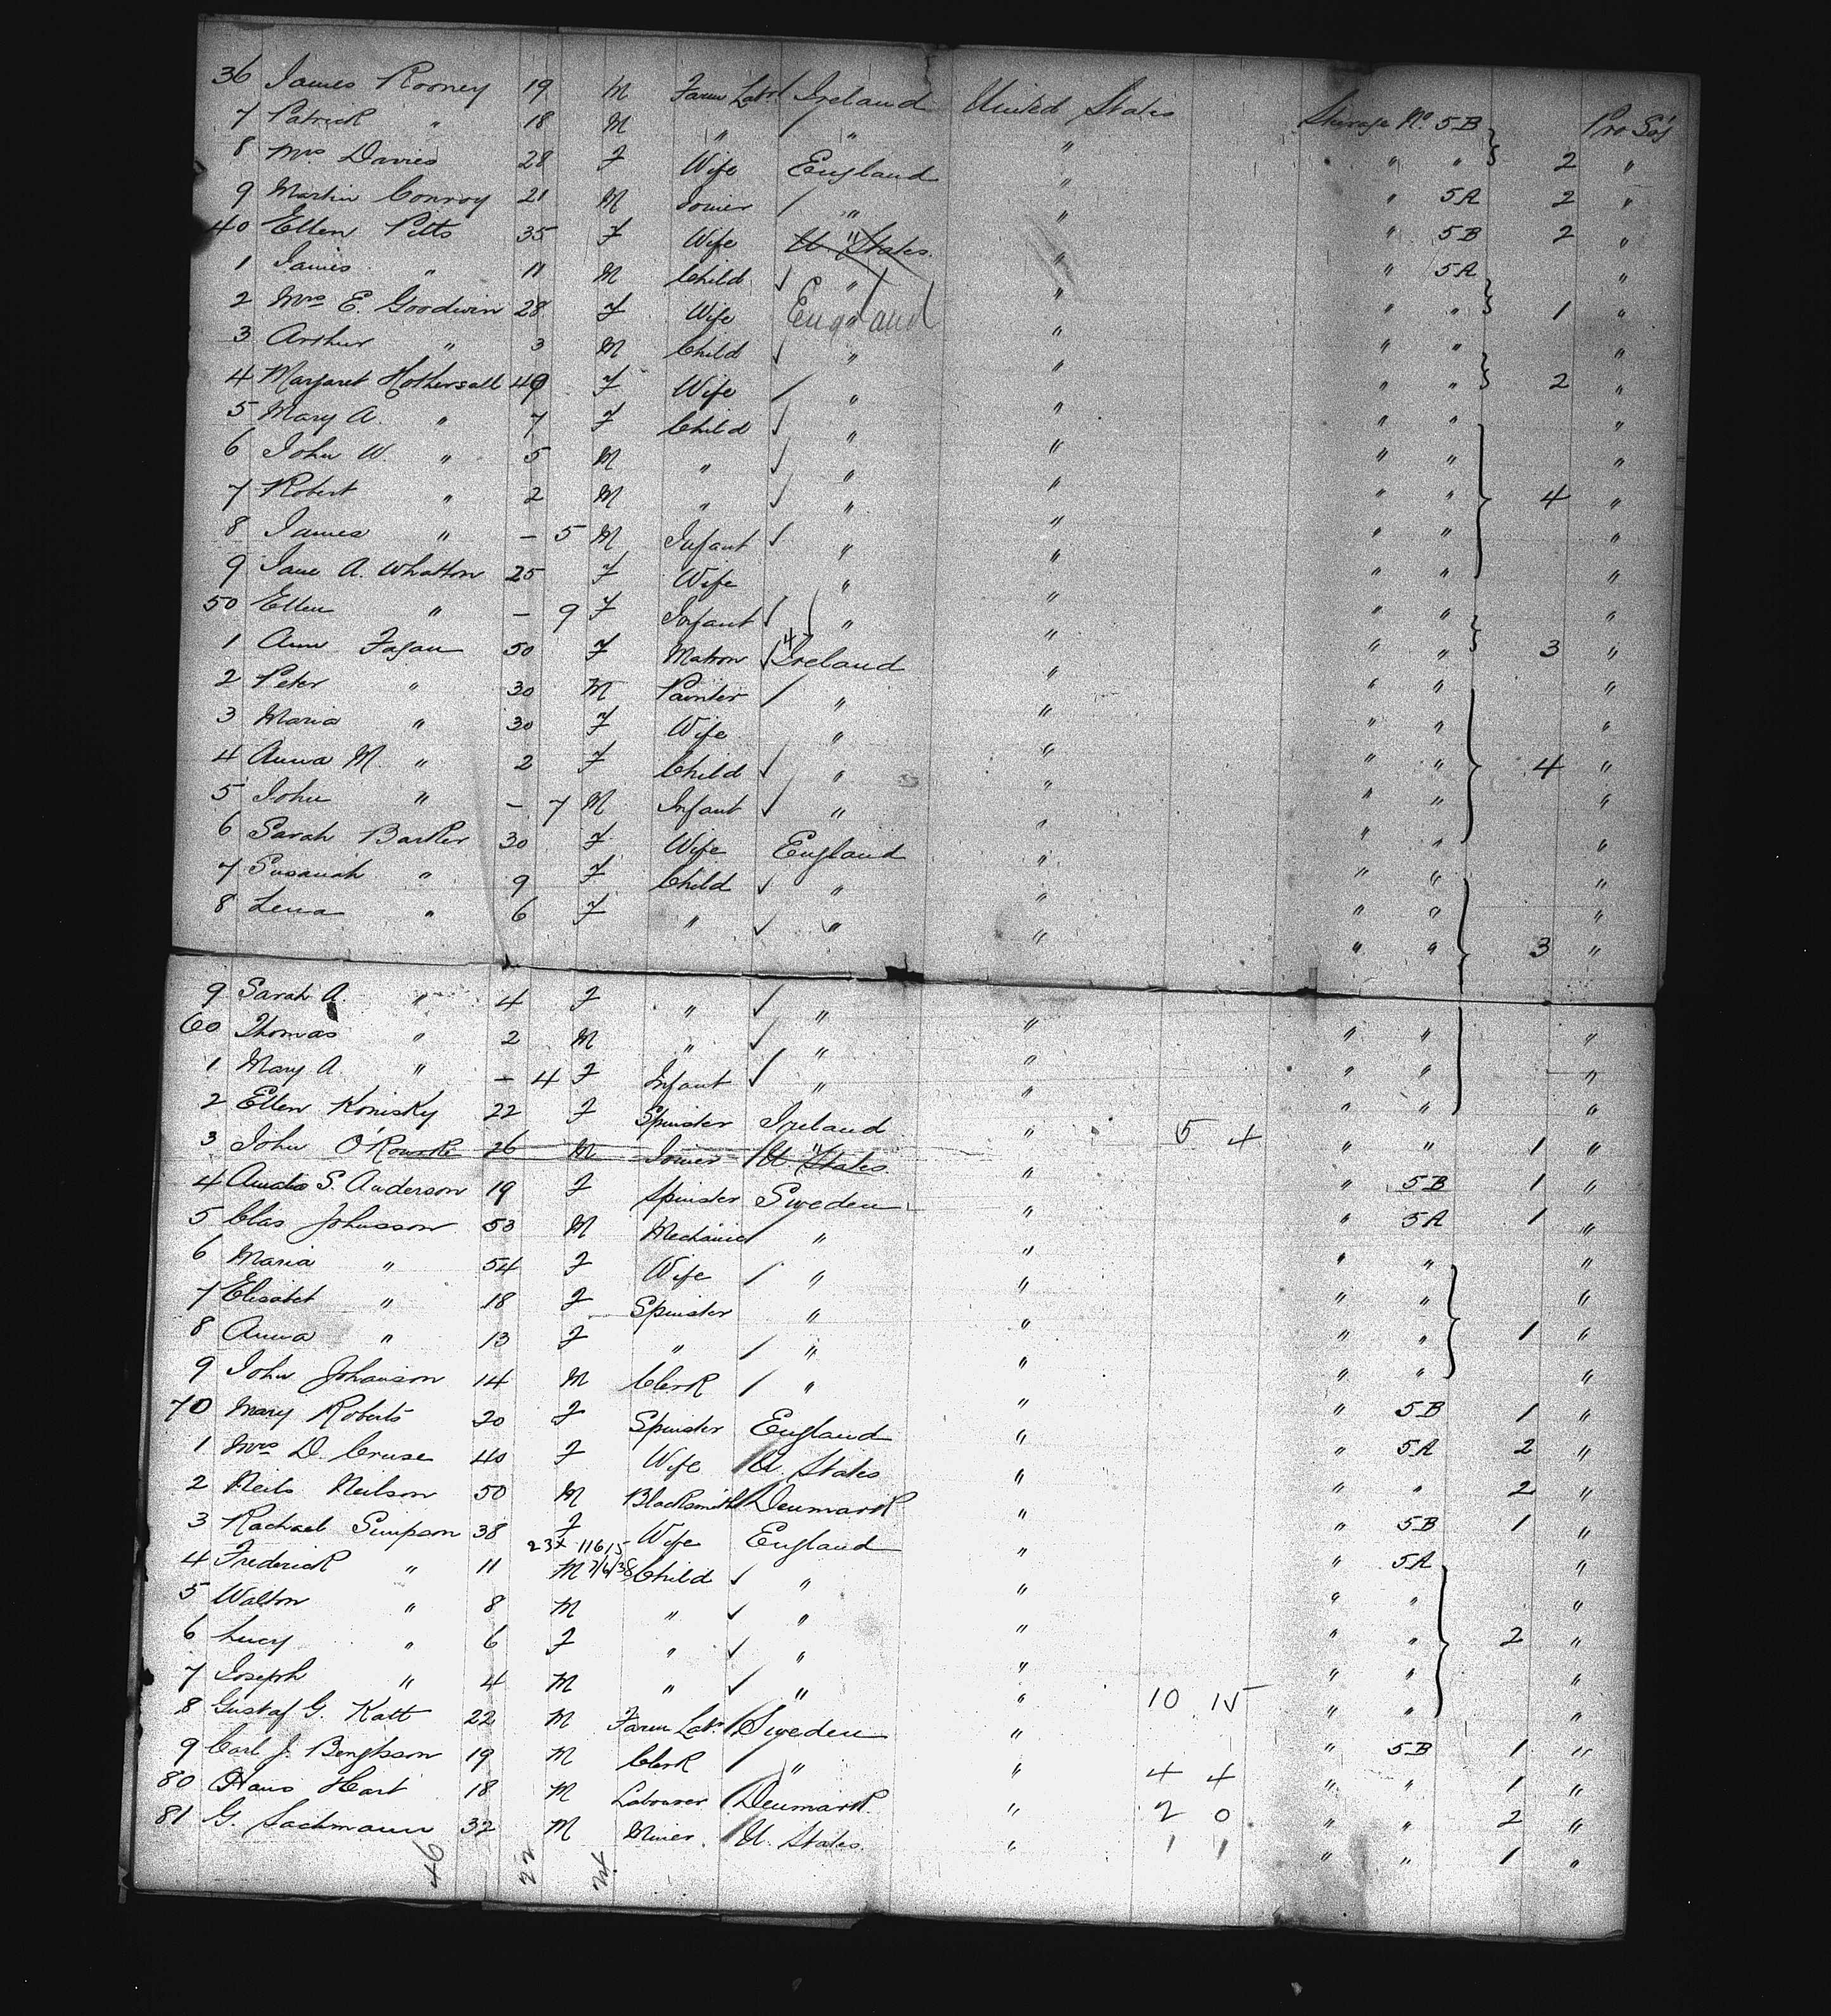 36 James Rooney 19 M Farm Labr Ireland United States Steerage No. 5B Pro Soj
7 Patrick " 18 M " " " " " 2 "
8 Mrs Davies 28 F Wife England " " 5A 2 "
9 Martin Conroy 21 M Joiner / " " " 5B 2 "
40 Ellen Pitts 35 F Wife U. States " " 5A "
1 James " 11 M Child ✓ " " " " 1 "
2 Mrs E. Goodwin 28 F Wife England " " " "
3 Arthur " 3 M Child ✓ " " " " 2 "
4 Margaret Hothersall 49 F Wife / " " " " "
5 Mary A. " 7 F Child ✓ " " " " "
6 John W. " 5 M " ✓ " " " " 4 "
7 Robert " 2 M " ✓ " " " " "
8 James " – 5 M Infant ✓ " " " " "
9 Jane A. Whatton 25 F Wife " " " " "
50 Ellen " – 9 F Infant ✓ " " " " 3 "
1 Ann Fagan 50 F Matron ✓ Ireland " " " "
2 Peter " 30 M Painter / " " " " "
3 Maria " 30 F Wife " " " " 4 "
4 Anna M. " 2 F Child ✓ " " " " "
5 John " – 7 M Infant ✓ " " " " "
6 Sarah Barker 30 F Wife England " " " "
7 Susanah " 9 F Child ✓ " " " " "
8 Lena " 6 F " ✓ " " " " 3 "
9 Sarah A. " 4 F " ✓ " " " " "
60 Thomas " 2 M " ✓ " " " " "
1 Mary A. " – 4 F Infant ✓ " " " " "
2 Ellen Konisky 22 F Spinster Ireland " 5 4 " " 1 "
3 John O'Rourke 26 M Joiner / U. States " " 5B 1 "
4 S. Anderson 19 F Spinster Sweden " " 5A 1 "
5 Clas Johnsson 53 M Mechanic / " " " " "
6 Maria " 54 F Wife / " " " " "
7 Elisabet " 18 F Spinster " " " " 1 "
8 Anna " 13 F " / " " " " "
9 John Johanson 14 M Clerk / " " " 5B 1 "
70 Mary Roberts 20 F Spinster England " " 5A 2 "
1 Mrs D. Cruse 40 F Wife / U. States " " " 2 "
2 Neils Neilson 50 M Blacksmith / Denmark " " 5B 1 "
3 Rachael Simpson 38 F Wife England " " 5A "
4 Frederick " 11 M Child ✓ " " " " "
5 Walton " 8 M " ✓ " " " " 2 "
6 Lucy " 6 F " ✓ " " " " "
7 Joseph " 4 M " ✓ " " 10 15 " " "
8 Gustaf G. Katt 22 M Farm Labr / Sweden " " 5B 1 "
9 Carl J. Bengtsson 19 M Clerk / " " 4 4 " " 1 "
80 Hans Hart 18 M Labourer / Denmark " 2 0 " " 2 "
81 G. Sachmann 32 M Miner / U. States " 1 1 " " 1 "
46 22